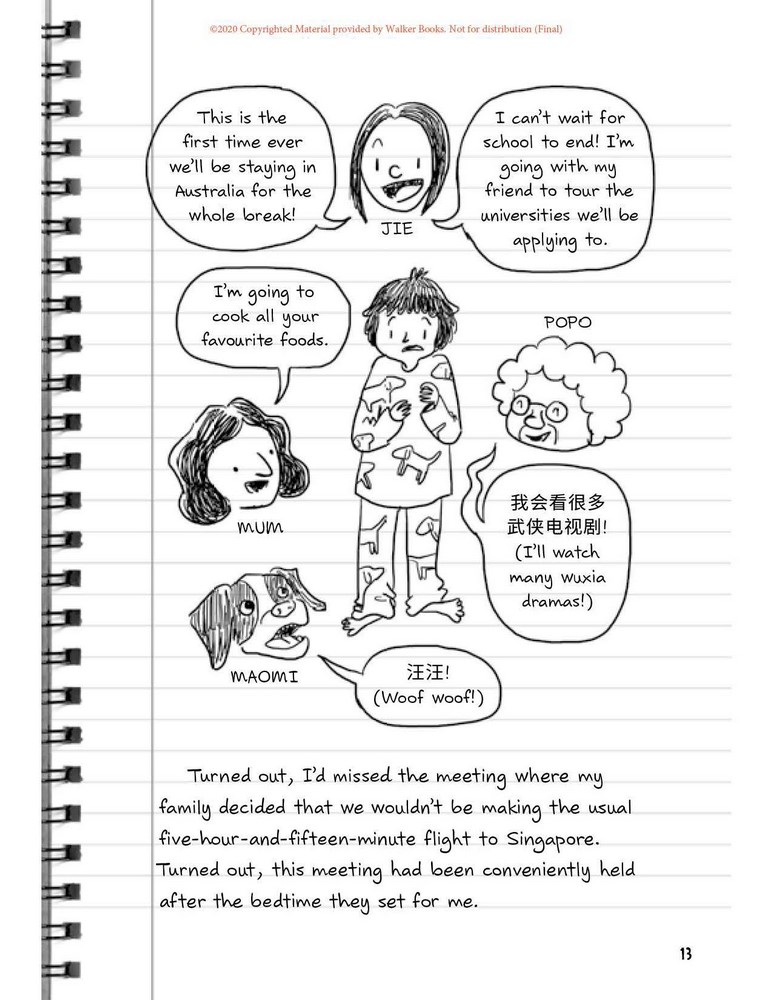 ©2020 Copyrighted Material provided by Walker Books. Not for distribution (Final)
This is the
first time ever
we'll be staying in
Australia for the
whole break!
I can't wait for
school to end! I'm
going with my
friend to tour the
universities we'll be
applying to.
JIE
I'm going to
cook all your
favourite foods.
MUM
POPO
我会看很多
武侠电视剧!
(I'll watch
many wuxia
dramas!)
MAOMI
汪汪!
(Woof woof!)
Turned out, I'd missed the meeting where my
family decided that we wouldn't be making the usual
five-hour-and-fifteen-minute flight to Singapore.
Turned out, this meeting had been conveniently held
after the bedtime they set for me.
13